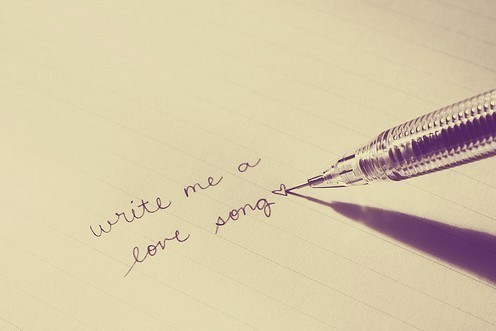 write me a
love song